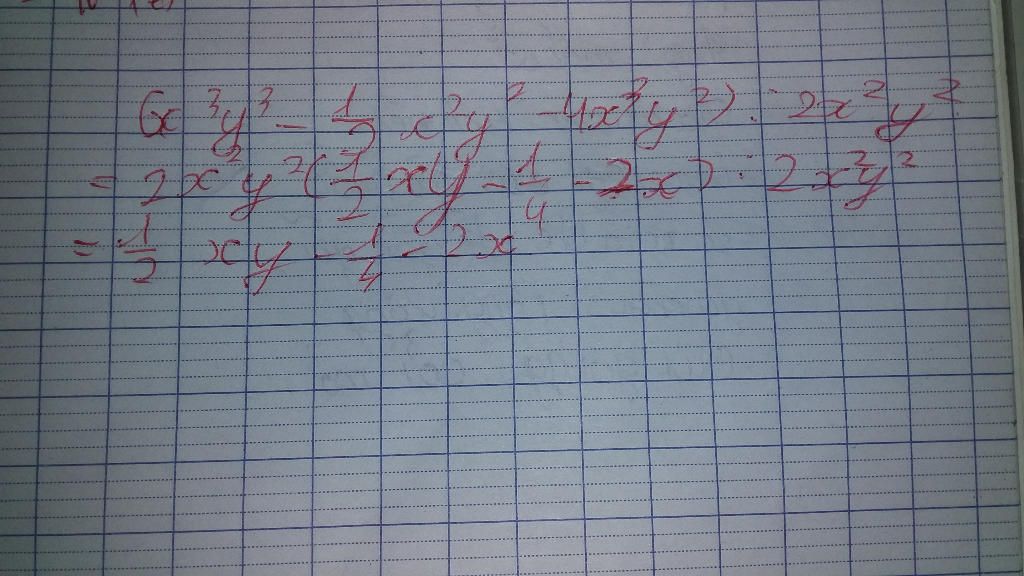 6x³y³ - 1/2 x²y² - 4x³y²) : 2x²y²
= 2x²y²(1/2 xy - 1/4 - 2x) : 2x²y²
= 1/2 xy - 1/4 - 2x